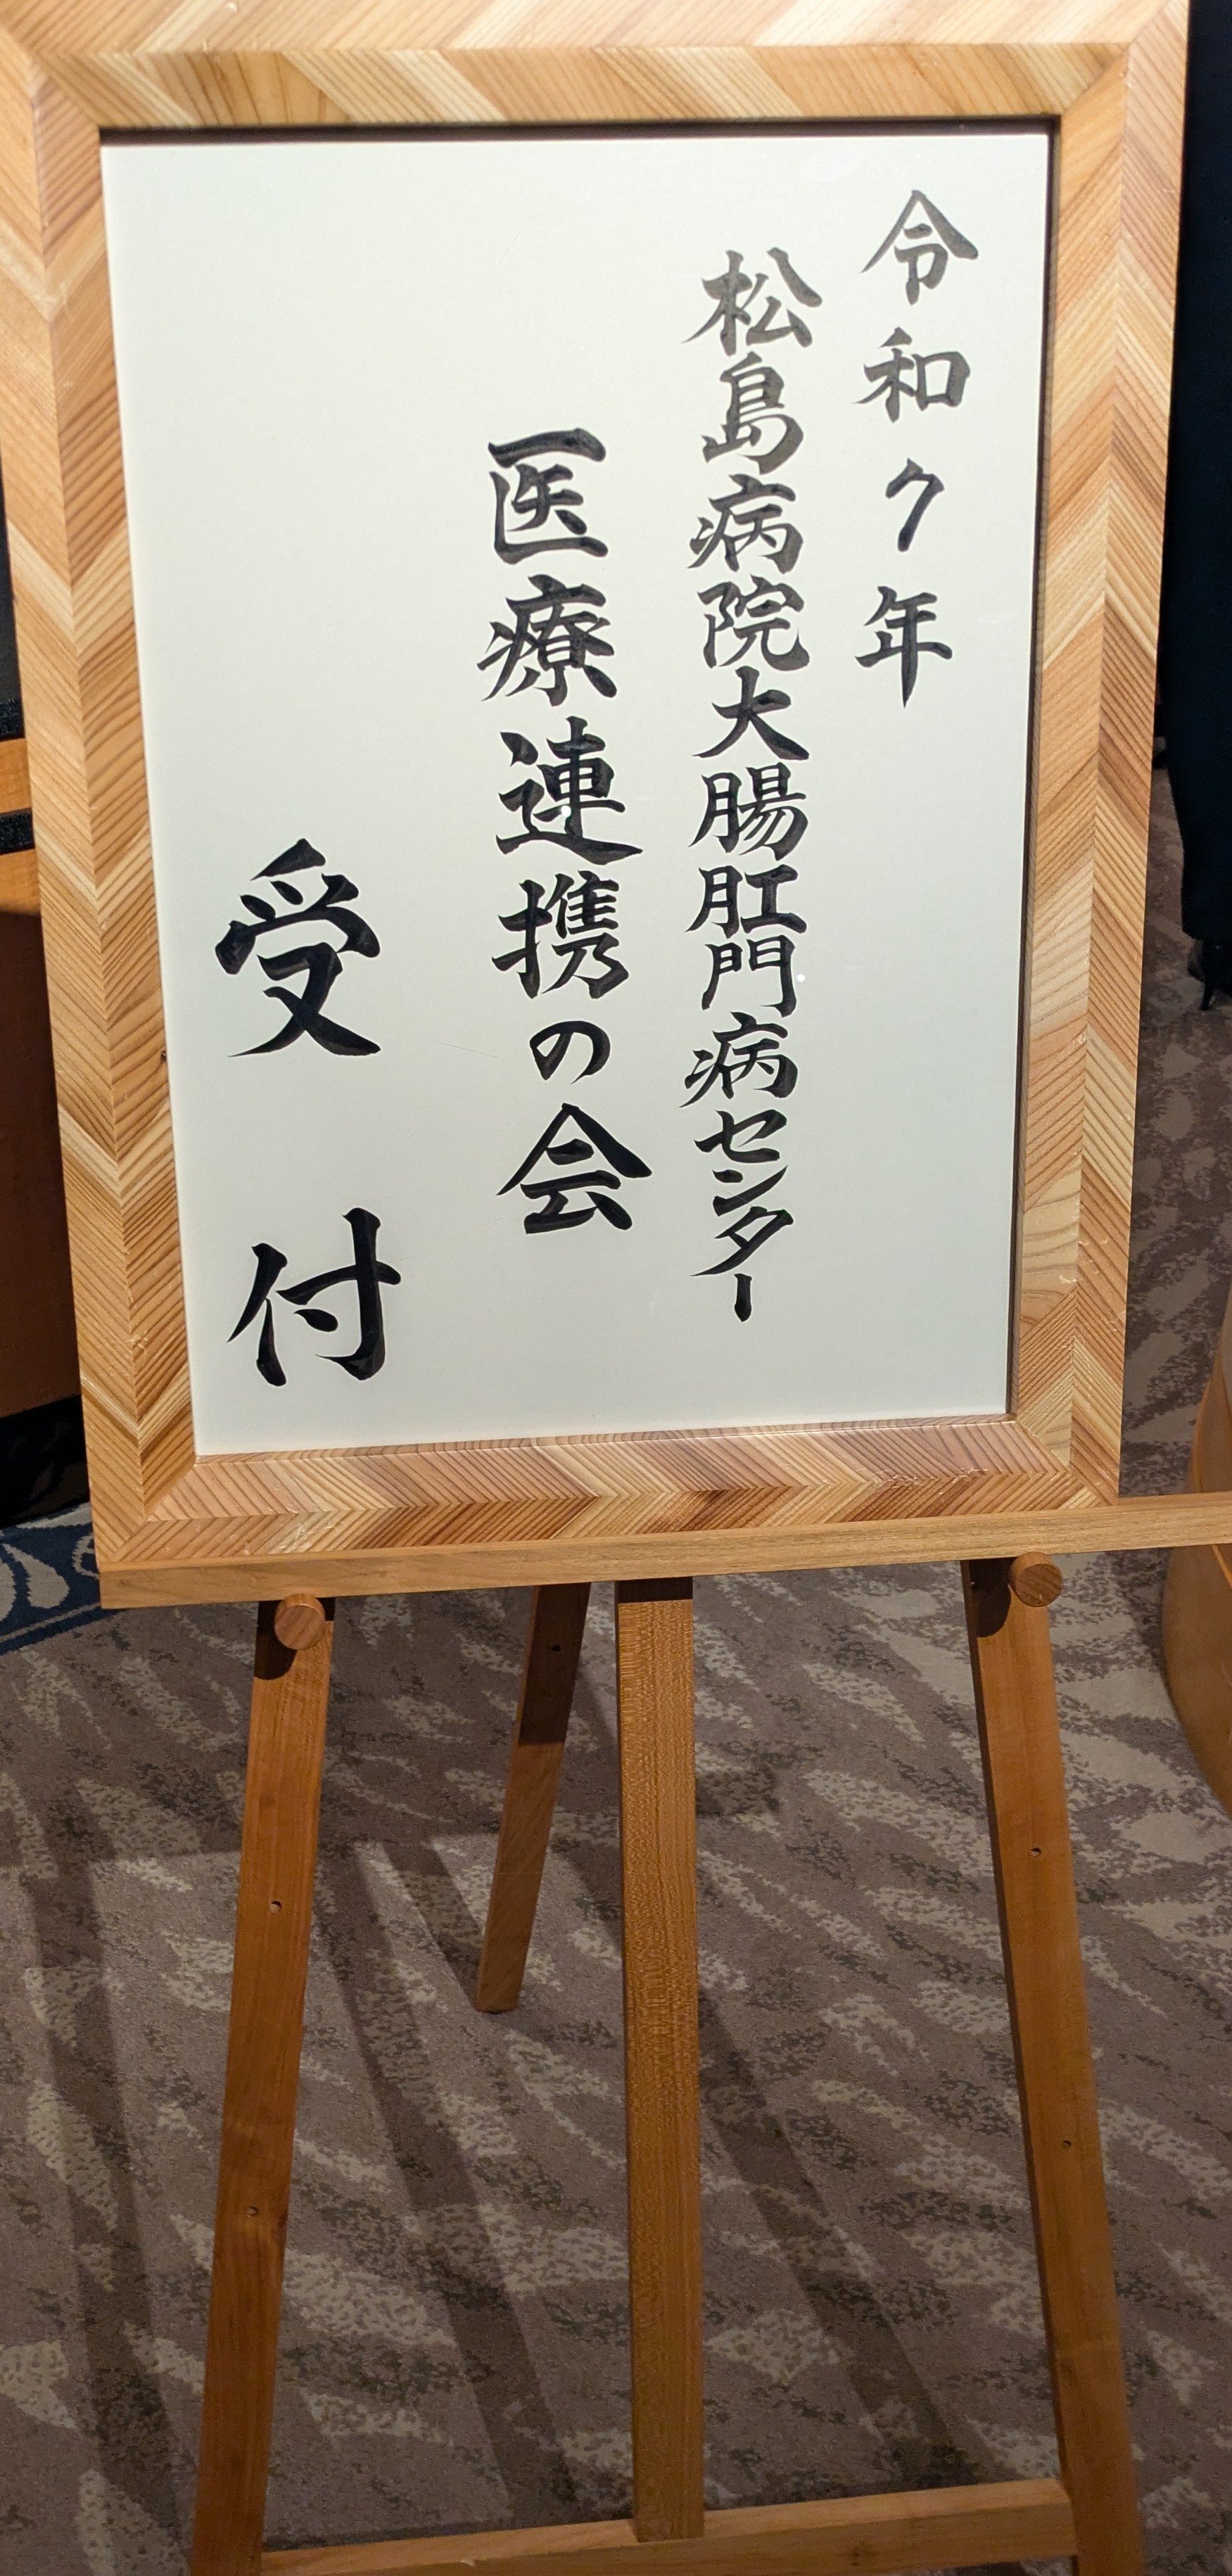 令和7年
松島病院大腸肛門病センター
医療連携の会
受付